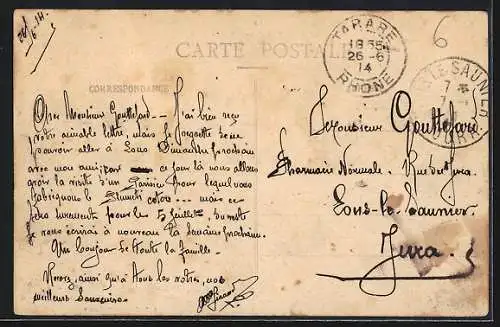 CARTE POSTALE
CORRESPONDANCE
TARARE
18 55
26 -6
14
RHONE
6
LE SAUNIER
7
JURA
Monsieur Gouttefard — J'ai bien reçu
votre aimable lettre, mais je regrette de ne
pouvoir aller à Lons Dimanche prochain
avec mon ami; ce jour là nous allons
avoir la visite d'un pour lequel nous
fabriquons le coton — mais ce
sera sûrement pour le 5 juillet,
Je nous écrirai à nouveau la semaine prochaine.
Un bonjour de toute la famille.
Recevez, ainsi qu'à tous les vôtres, nos
meilleurs
Monsieur Gouttefard
Pharmacie Normale. Rue du Jura
Lons-le-Saunier
Jura